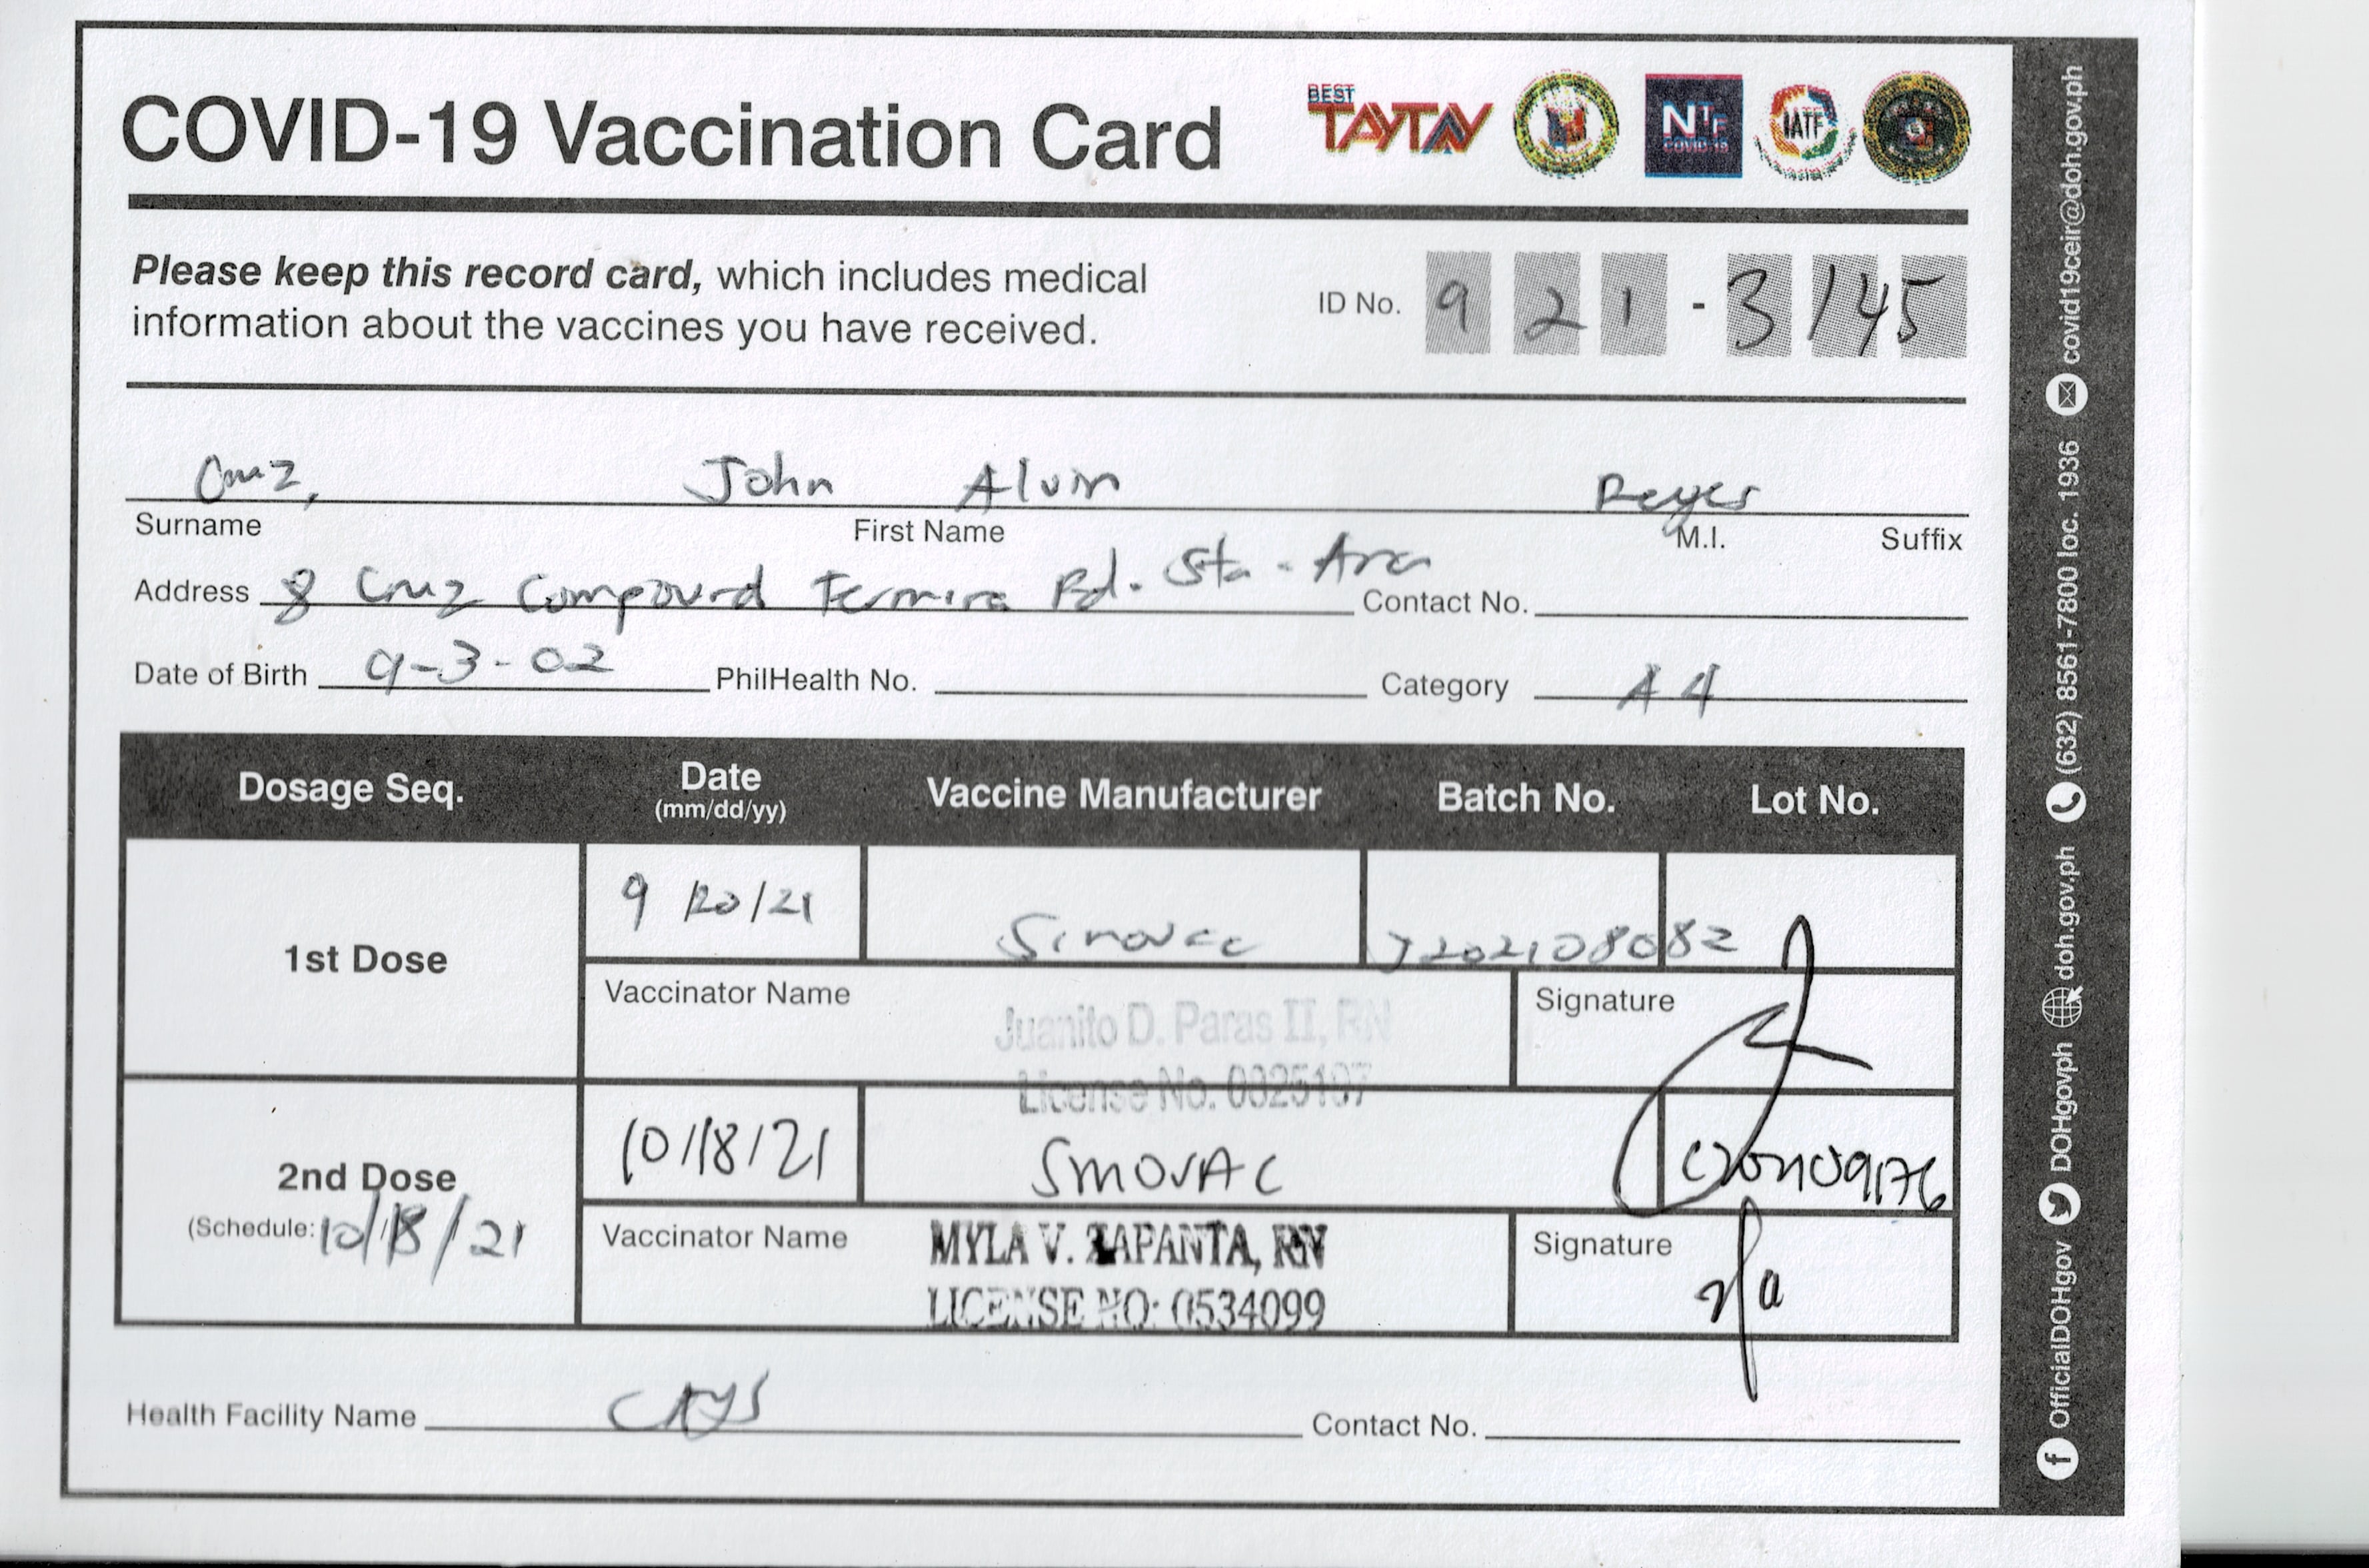 COVID-19 Vaccination Card
BEST TAYTAY
NTF COVID-19
IATF
Please keep this record card, which includes medical
information about the vaccines you have received.
ID No. 9 2 1 - 3 1 4 5
Cruz, John Alvin Reyes
Surname First Name M.I. Suffix
Address 8 Cruz Compound Rd. Sta. Ana Contact No.
Date of Birth 9-3-02 PhilHealth No. Category A4
Dosage Seq. Date (mm/dd/yy) Vaccine Manufacturer Batch No. Lot No.
1st Dose 9/20/21 Sinovac J202108082
Vaccinator Name Juanito D. Paras II, RN Signature
License No. 0325107
2nd Dose 10/18/21 SINOVAC
(Schedule: 10/18/21
Vaccinator Name MYLA V. ZAPANTA, RN Signature
LICENSE NO: 0534099
Health Facility Name Contact No.
OfficialDOHgov DOHgovph doh.gov.ph (632) 8561-7800 loc. 1936 covid19ceir@doh.gov.ph